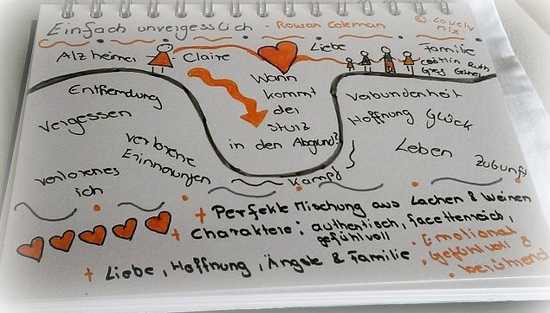 Einfach unvergesslich - Rowan Coleman
© Lovely Mix
Alzheimer Claire Liebe Familie
Caitlin, Ruth,
Greg
Entfremdung Wann Verbundenheit
Vergessen kommt Hoffnung Glück
der
Sturz
verlorene in den Abgrund? Leben
Erinnerungen Zukunft
verlorenes Kampf
ich
+ Perfekte Mischung aus Lachen & Weinen
+ Charaktere: authentisch, facettenreich,
gefühlvoll
+ Liebe, Hoffnung, Ängste & Familie
· Emotional
· Gefühlvoll &
· berührend